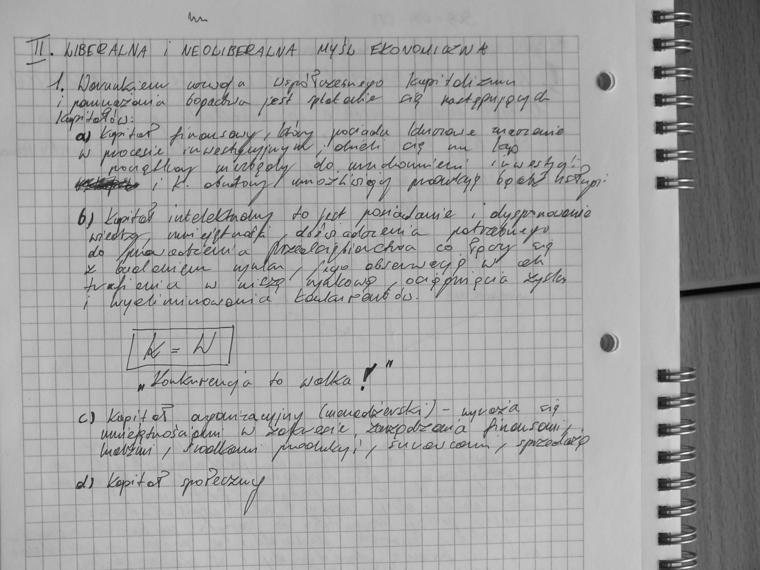 II. LIBERALNA i NEOLIBERALNA MYŚL EKONOMICZNA
1. Warunkiem rozwoju współczesnego kapitalizmu
i pomnażania bogactwa jest splatanie się następujących
kapitałów:
a) Kapitał finansowy, który posiada kluczowe znaczenie
w procesie inwestycyjnym, dzieli się na kap
początkowy niezbędny do uruchomienia inwestycji
i K. obrotowy umożliwiający produkcję bądź usługi
b) Kapitał intelektualny to jest posiadanie i dysponowanie
wiedzy, umiejętności, doświadczenia potrzebnego
do prowadzenia przedsiębiorstwa co łączy się
z badaniem rynku, jego obserwację w celu
trafienia w niszę rynkową, osiągnięcia zysku
i wyeliminowania konkurentów.
K = W
„Konkurencja to walka!"
c) Kapitał organizacyjny (menedżerski) - wyraża się
umiejętnościami w zakresie zarządzania finansami,
ludźmi, środkami produkcji, surowcami, sprzedażą
d) Kapitał społeczny